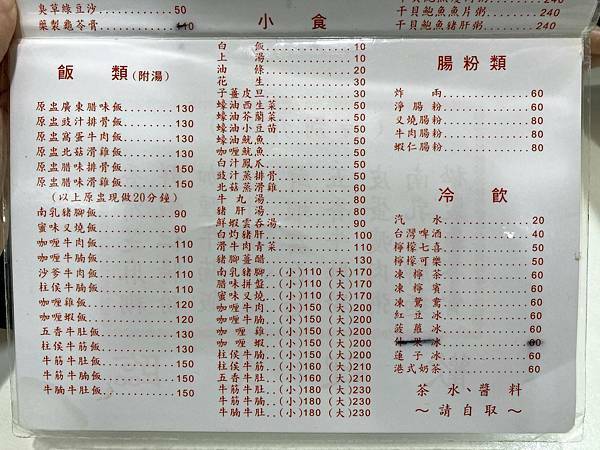 臭草綠豆沙........50
藥製龜苓骨........110
干貝鮑魚魚片粥......240
干貝鮑魚豬肝粥......240
飯 類 (附湯)
原盅廣東腊味飯........130
原盅豉汁排骨飯........130
原盅窩蛋牛肉飯........130
原盅北菇滑雞飯........130
原盅腊味排骨飯........150
原盅腊味滑雞飯........150
(以上原盅現做20分鐘)
南乳豬腳飯........90
蜜味叉燒飯........90
咖喱牛肉飯........110
咖喱牛腩飯........110
沙爹牛肉飯........110
柱侯牛腩飯........110
咖喱雞飯........120
咖喱蝦飯........120
五香牛肚飯........130
柱侯牛肚飯........130
牛筋牛腩飯........150
牛筋牛肚飯........150
牛腩牛肚飯........150
小 食
白飯........10
上湯........10
油條........20
花生........30
子薑皮旦........30
蠔油西生菜........50
蠔油芥蘭菜........50
蠔油小豆苗........50
蠔油魷魚........50
咖喱魷魚........50
白汁鳳爪........50
豉汁蒸排骨........50
北菇蒸滑雞........60
牛丸湯........80
豬肝湯........80
鮮蝦雲吞湯........90
白灼豬肝........100
滑牛肉青菜........110
豬腳薑醋........130
南乳豬腳..(小)110 (大)170
腊味拼盤..(小)110 (大)170
蜜味叉燒..(小)110 (大)170
咖喱牛肉..(小)150 (大)200
咖喱牛腩..(小)150 (大)200
咖喱雞..(小)150 (大)200
咖喱蝦..(小)150 (大)200
柱侯牛腩..(小)150 (大)200
柱侯牛肚..(小)160 (大)210
五香牛肚..(小)160 (大)210
牛筋牛肚..(小)180 (大)230
牛筋牛腩..(小)180 (大)230
牛腩牛肚..(小)180 (大)230
腸粉類
炸兩........60
淨腸粉........60
叉燒腸粉........80
牛肉腸粉........80
蝦仁腸粉........80
冷 飲
汽水........20
台灣啤酒........40
檸檬七喜........50
檸檬可樂........50
凍檸茶........60
凍檸賓........60
凍鴛鴦........60
紅豆冰........60
菠蘿冰........60
蓮子冰........60
港式奶茶........60
茶水、醬料
～請自取～